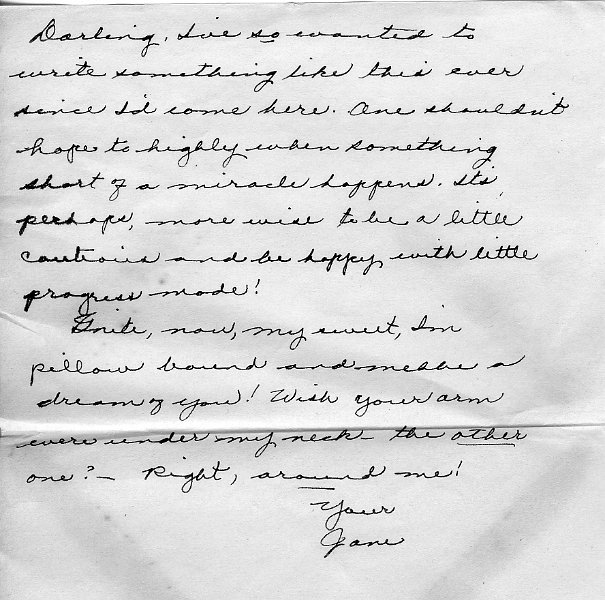 Darling, I've so wanted to
write something like this ever
since I'd come here. One shouldn't
hope to highly when something
short of a miracle happens. Its,
perhaps, more wise to be a little
cautious and be happy with little
progress made!
G'nite, now, my sweet, I'm
pillow bound and mebbe a
dream of you! Wish your arm
were under my neck - the other
one? - Right, around me!
Your
Jane